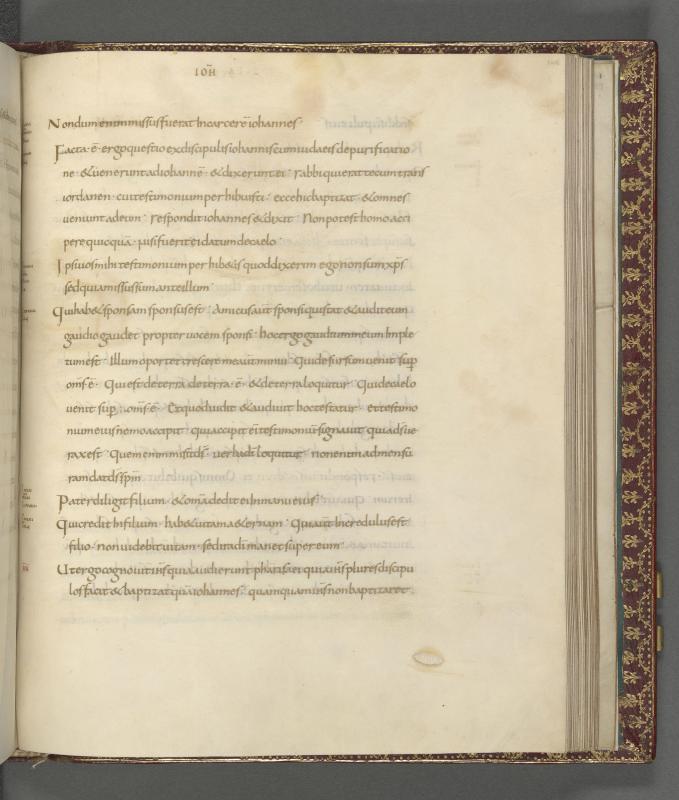 IOH̄
Nondum enim missus fuerat Incarcerē iohannes·
Facta·ē·ergo questio exdiscipulis iohannis cum iudaeis depurificatio
ne·&uenerunt adiohannē·&dixerunt ei· rabbi quierat tecum trans
iordanen· cui testimonium perhibuisti· ecce hic baptizat·&omnes
veniunt adeum· respondit iohannes &dixit· Non potest homo acci
pere quicquā· nisi fuerit ei datum decaelo·
Ipsi uos mihi testimonium perhib&is quod dixerim ego non sum xp̄s
sed quia missus sum ante illum·
Qui hab& sponsam sponsus est· Amicus aūt sponsi qui stat &audit eum
gaudio gaud&· propter uocem sponsi· hoc ergo gaudium meum Imple
tum est· Illum oport& crescere me aūt minui· Qui desursum uenit sup̄
om̄s·ē· Qui est deterra deterra·ē·&deterra loquitur· Qui decaelo
uenit sup̄·om̄s·ē· Et quod uidit &audiuit hoc testatur· et testimo
nium eius nemo accipit· qui accipit ei' testimoniū signauit quia d̄s ue
rax est· Quem enim misit d̄s· uerba dī loquitur· non enim admensu
ram dat d̄s sp̄m
Pater diligit filium·&om̄a dedit ei Inmanu eius·
Qui credit Infilium· hab& uitam a&ernam· Qui aūt Incredulus est
filio· non uidebit uitam· sed ira dī man& super eum·
Ut ergo cognouit ih̄s quia audierunt pharisaei quia ih̄s plures discipu
los facit &baptizat quā iohannes· quamquam ih̄s non baptizar&·